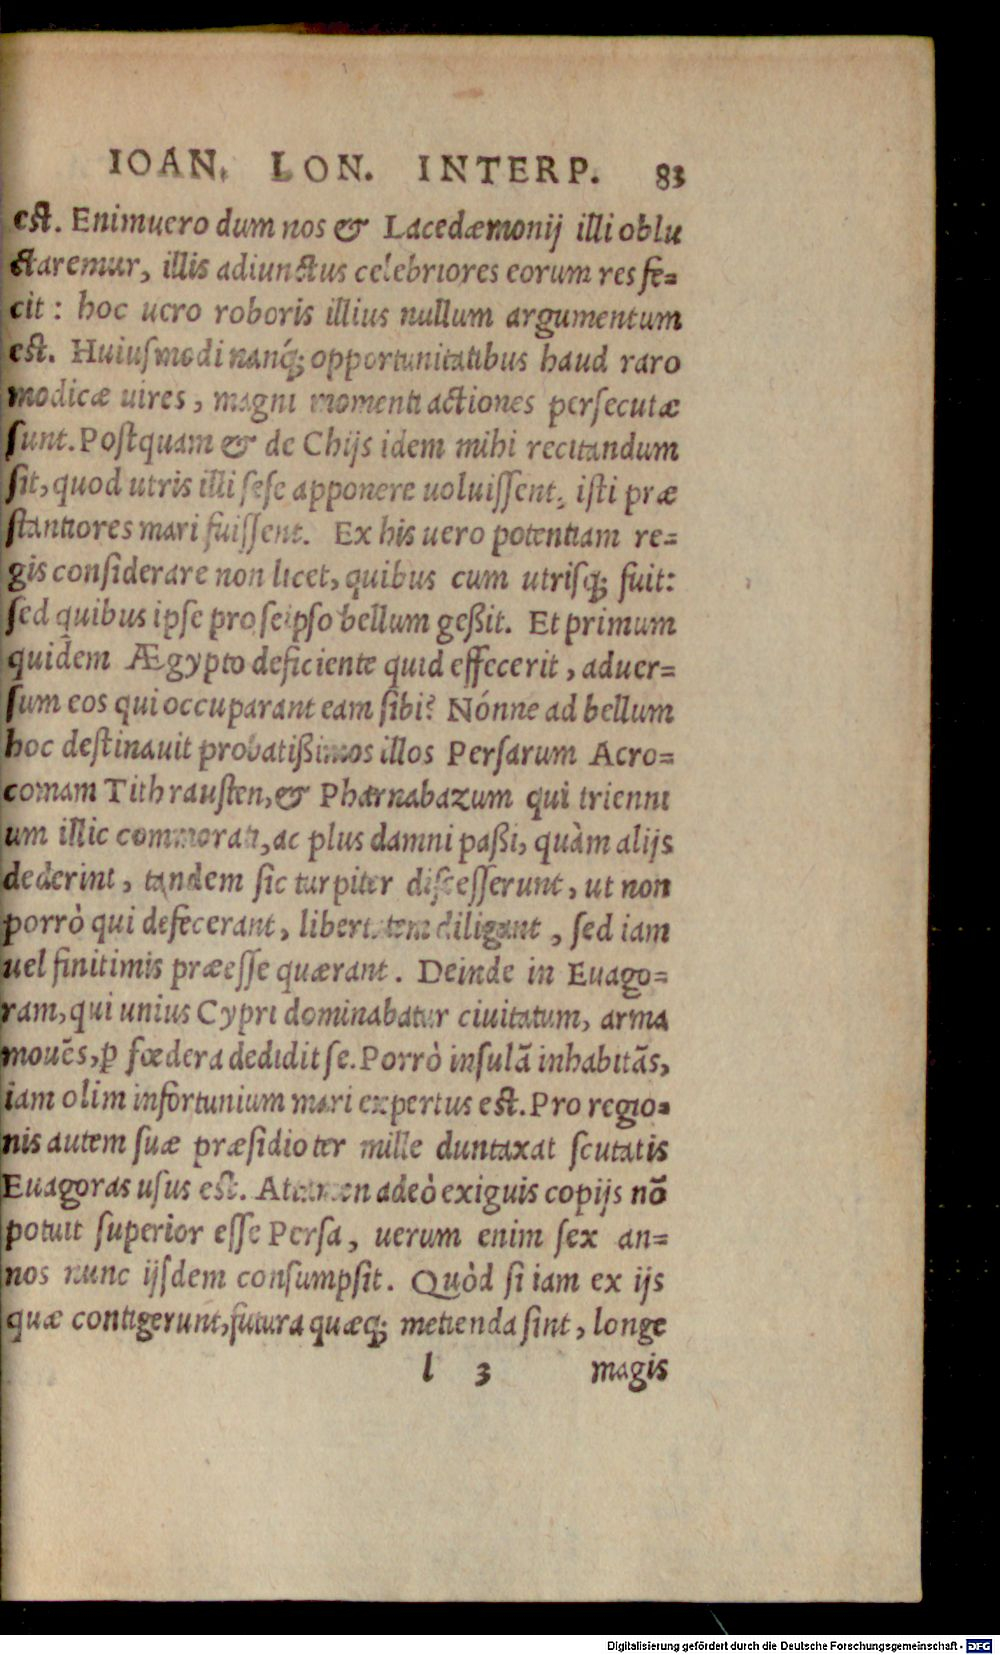 IOAN. LON. INTERP. 83
est. Enimuero dum nos & Lacedæmonij illi oblu
ctaremur, illis adiunctus celebriores eorum res fe=
cit: hoc uero roboris illius nullum argumentum
est. Huiusmodi nanq; opportunitatibus haud raro
modicæ uires, magni momenti actiones persecutæ
sunt. Postquam & de Chijs idem mihi recitandum
sit, quod utris illi sese apponere uoluissent, isti præ
stantiores mari fuissent. Ex his uero potentiam re=
gis considerare non licet, quibus cum utrisq; fuit:
sed quibus ipse pro seipso bellum geßit. Et primum
quidem Ægypto deficiente quid effecerit, aduer=
sum eos qui occuparant eam sibi? Nónne ad bellum
hoc destinauit probatißimos illos Persarum Acro=
comam Tithrausten, & Pharnabazum qui trienni
um illic commorati, ac plus damni paßi, quàm alijs
dederint, tandem sic turpiter discesserunt, ut non
porrò qui defecerant, libertatem diligant, sed iam
uel finitimis præesse quærant. Deinde in Euago=
ram, qui unius Cypri dominabatur ciuitatum, arma
mouēs, ꝑ fœdera dedidit se. Porrò insulā inhabitās,
iam olim infortunium mari expertus est. Pro regio=
nis autem suæ præsidio ter mille duntaxat scutatis
Euagoras usus est. Attamen adeò exiguis copijs nō
potuit superior esse Persa, uerum enim sex an=
nos nunc ijsdem consumpsit. Quòd si iam ex ijs
quæ contigerunt, futura quæq; metienda sint, longe
l 3 magis
Digitalisierung gefördert durch die Deutsche Forschungsgemeinschaft - DFG